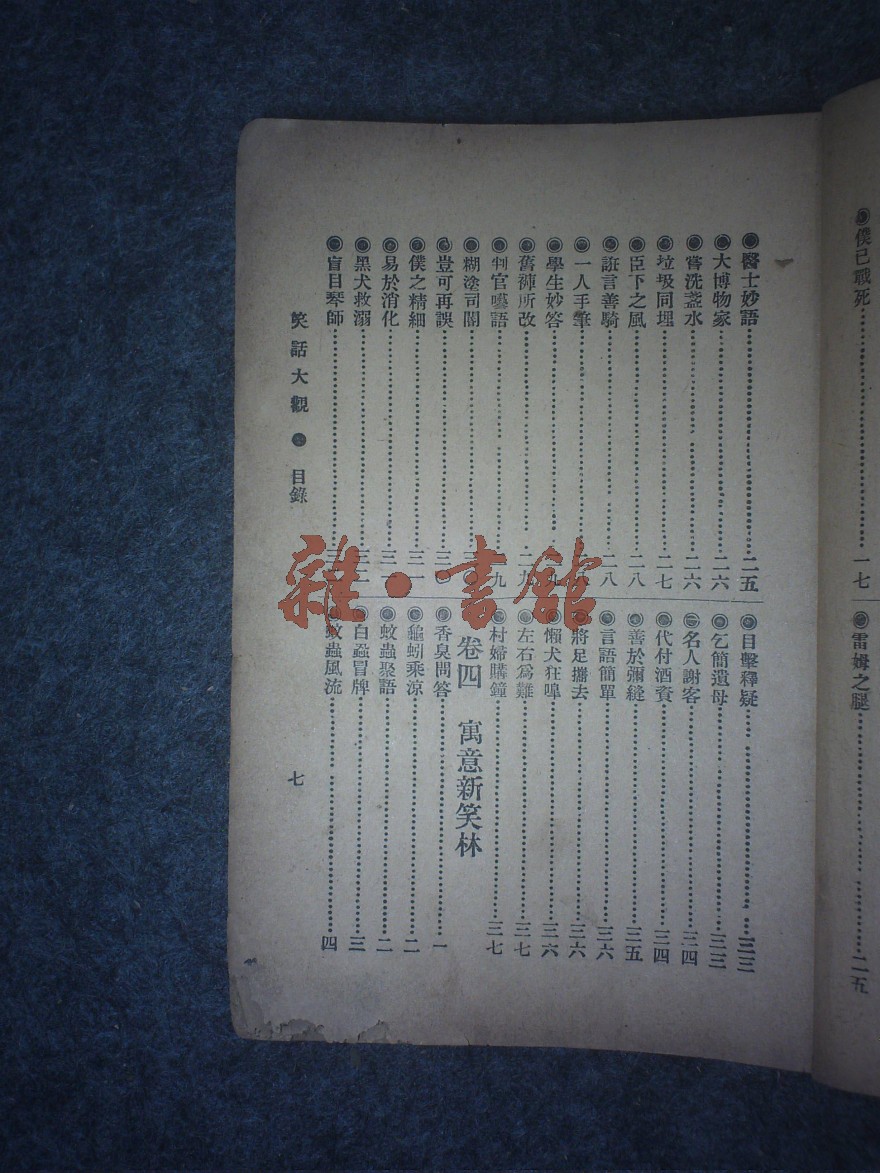 僕已戰死 一七
雷姆之腿 二五
醫士妙語 二五
大博物家 二六
嘗洗盞水 二六
垃圾同埋 二七
臣下之風 二八
誑言善騎 二八
一人手筆 二八
學生妙答
舊褲所改 二九
判官囈語 九
糊塗司閽
豈可再誤
僕之精細
易於消化
黑犬救溺
盲目琴師
目擊釋疑 三三
乞簡遺母 三三
名人謝客 三四
代付酒資 三四
善於彌縫 三五
言語簡單 三六
將足攜去 三六
懶犬狂嘷 三六
左右為難 三七
村婦購鐘 三七
卷四 寓意新笑林
香臭問答 一
龜蚓乘涼 二
蚊蟲聚語 二
白蝨冒牌 三
蚊蟲風流 四
笑話大觀 目錄
七
雜·書館